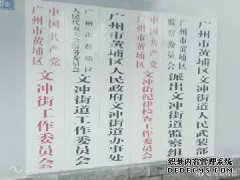 中国共产党
广州市黄埔区
文冲街道工作委员会
广州市黄埔区
人民代表大会常务委员会
文冲街道工作委员会
广州市黄埔区人民政府文冲街道办事处
中国共产党
广州市黄埔区
文冲街道纪律检查工作委员会
广州市黄埔区
监察委员会
派出文冲街道监察组
广州市黄埔区文冲街道人民武装部
织梦内容管理系统
DEDECMS.COM